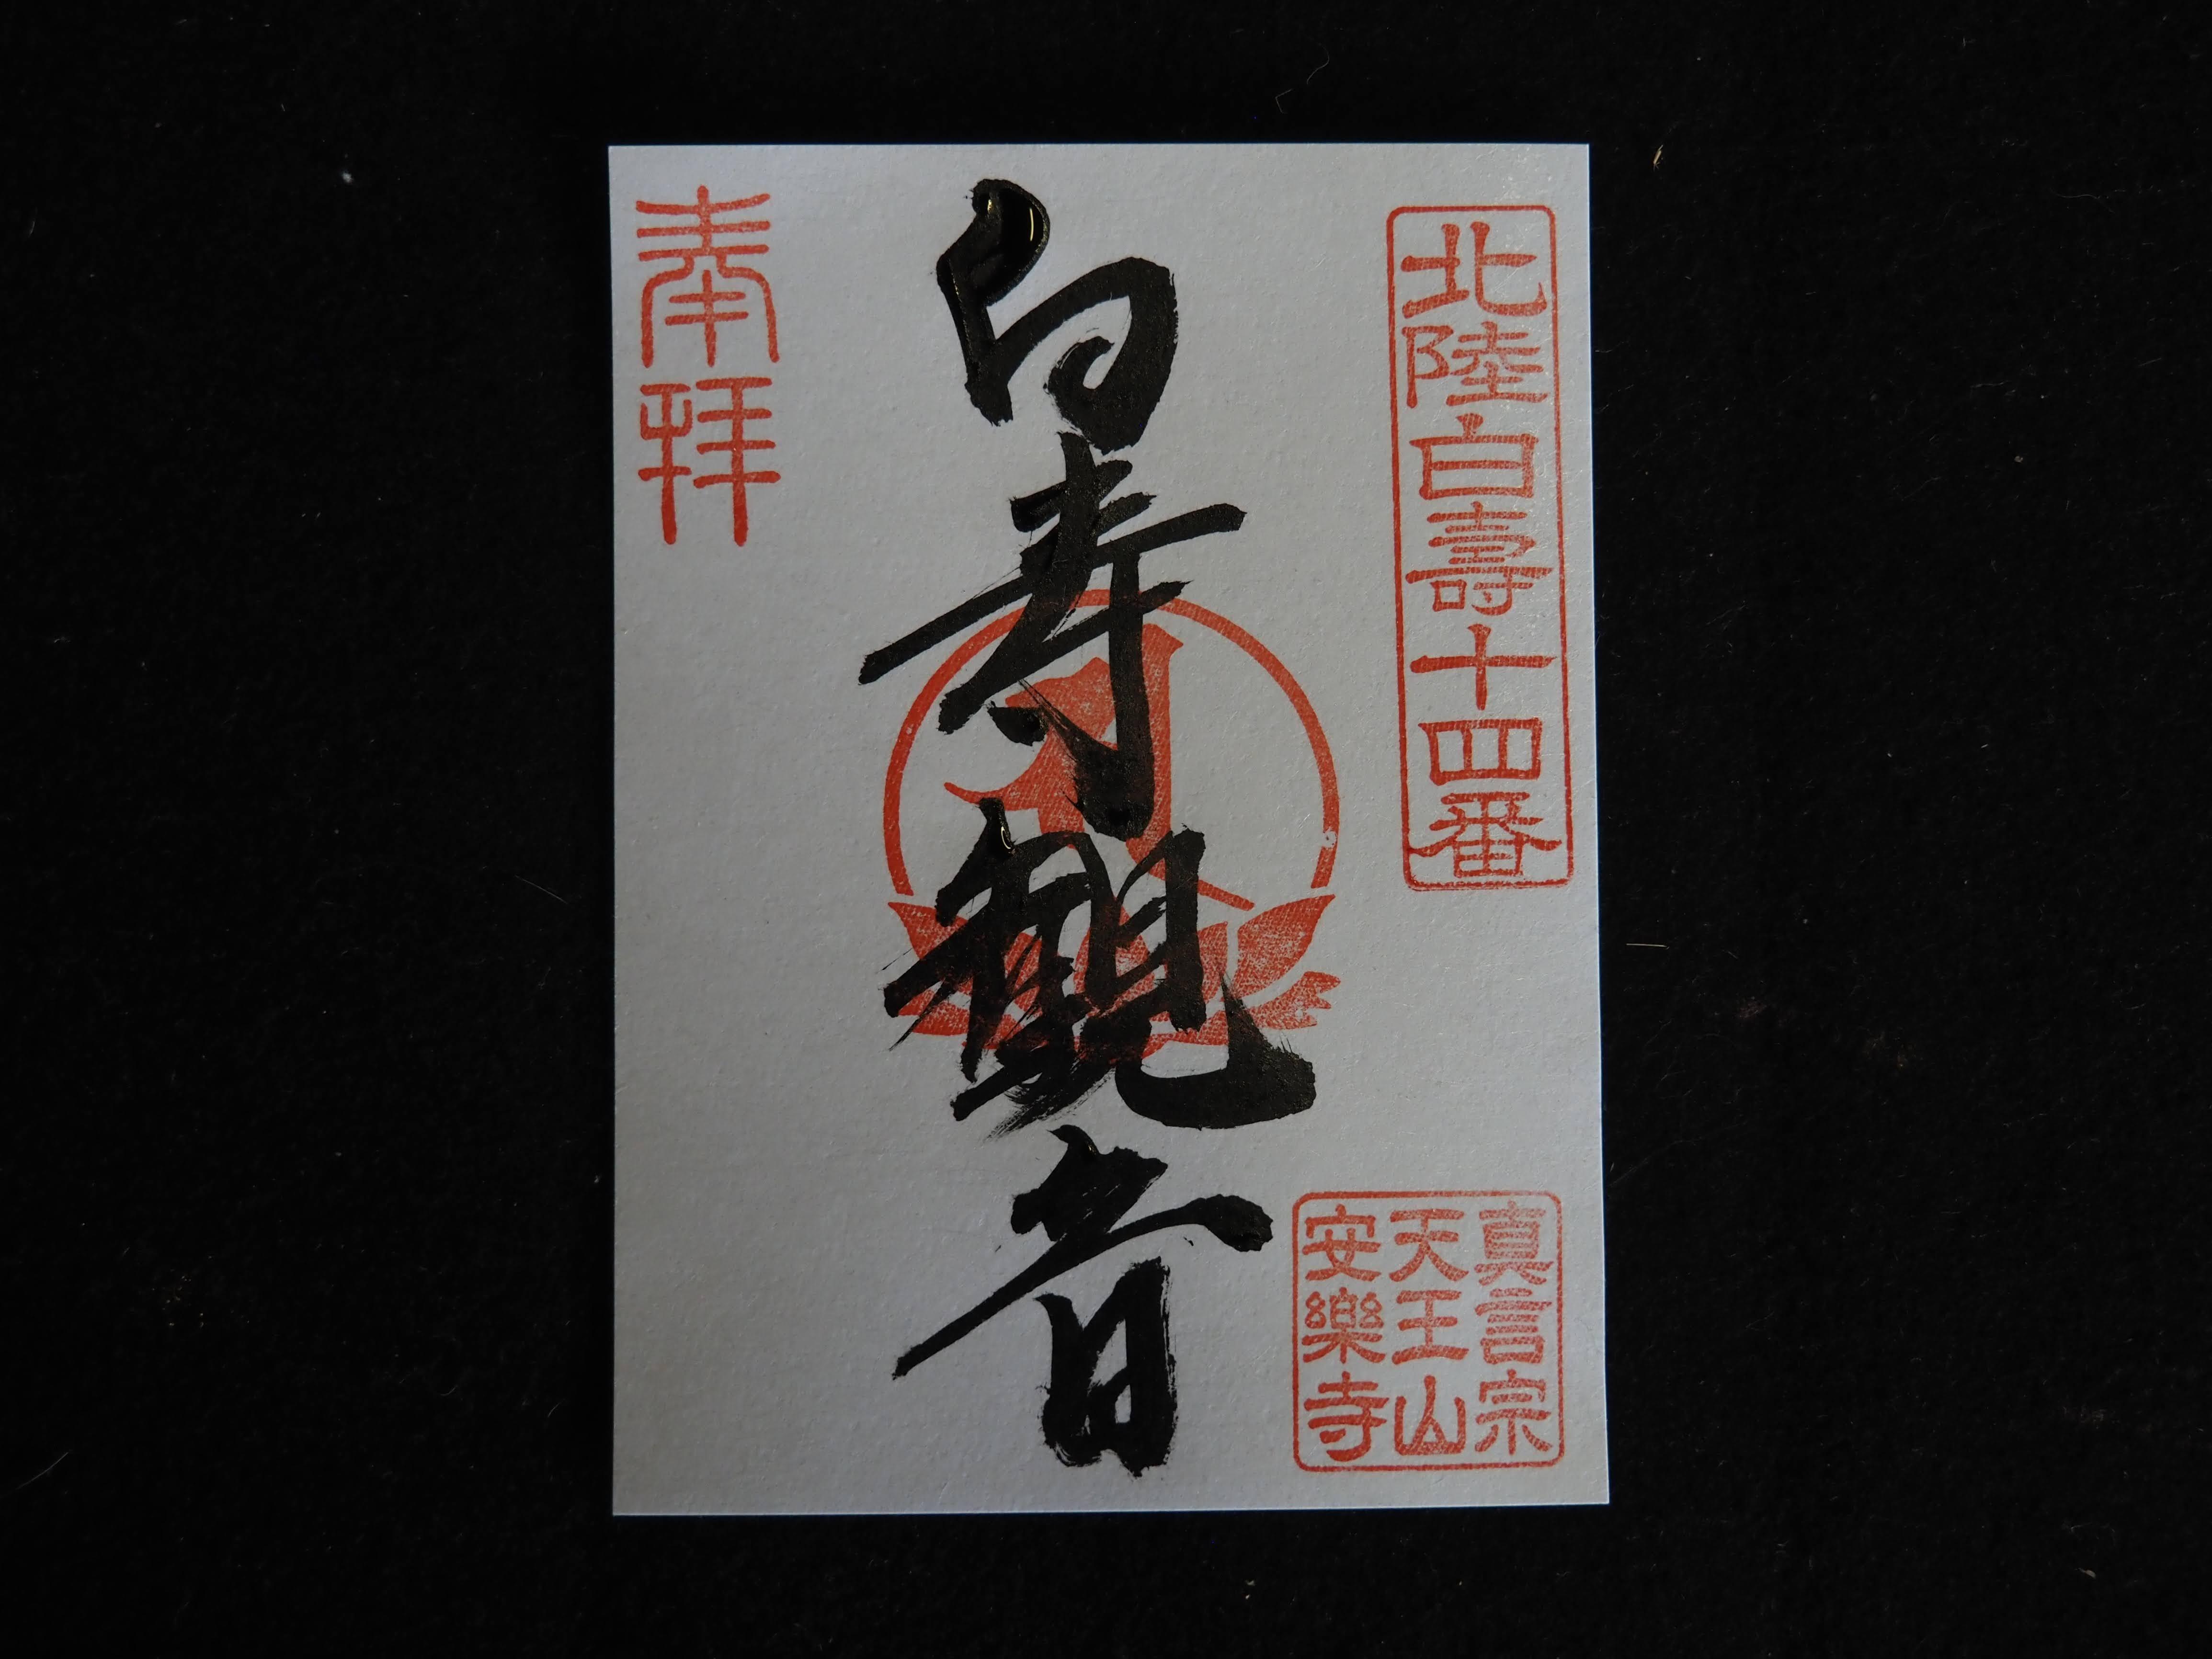 北陸白壽十四番
白寿観音
奉拝
真言宗
天王山
安樂寺